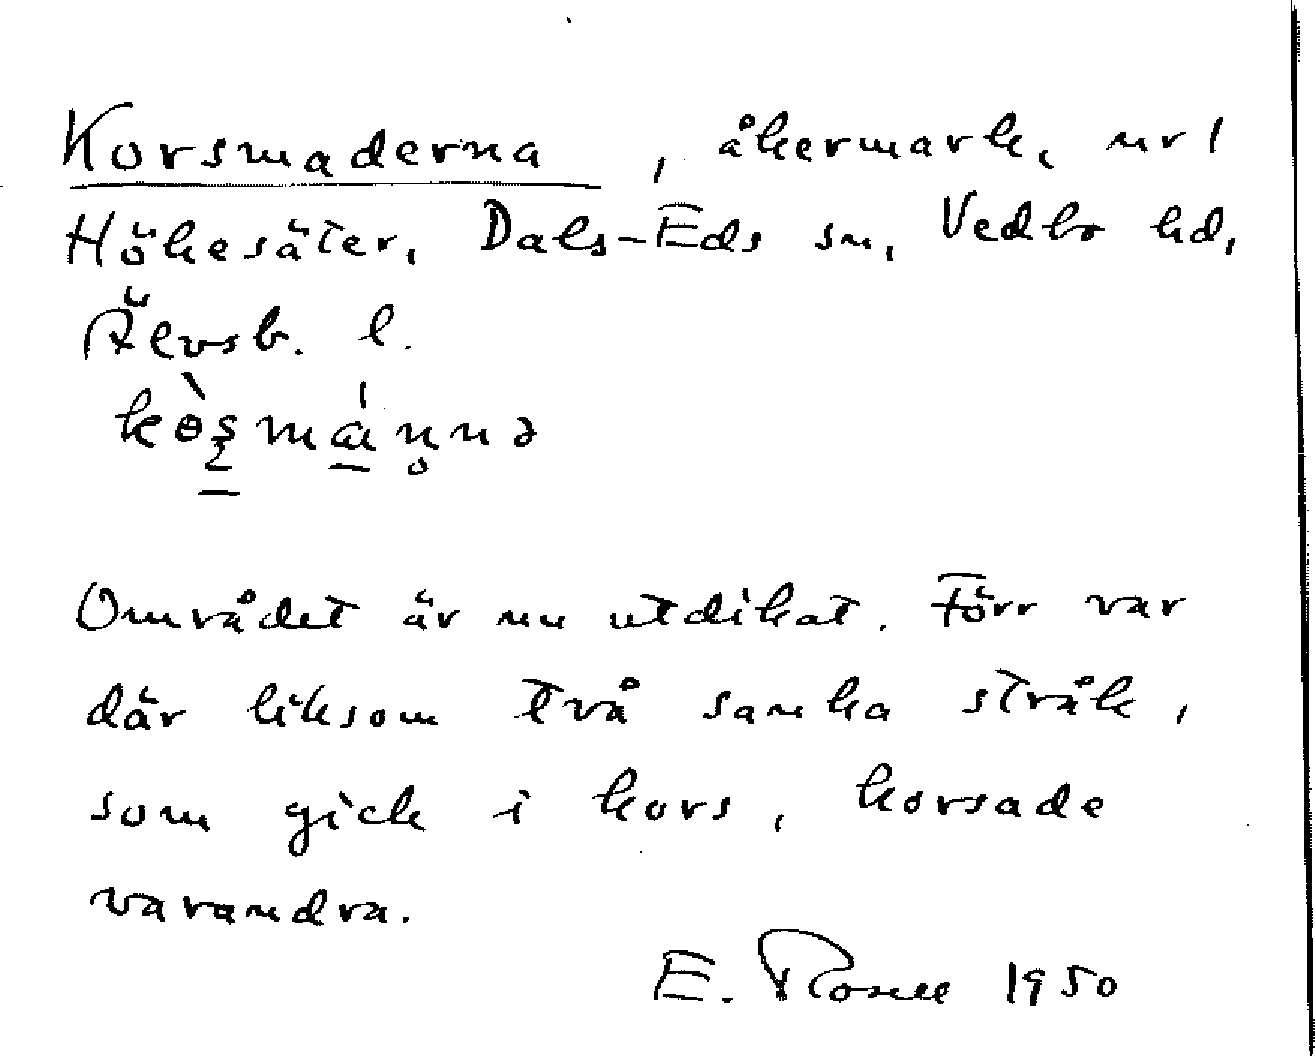 Korsmaderna, åkermark, nr 1
Hökesäter, Dals-Eds sn, Vedbo hd,
Älvsb. l.
Området är nu utdikat. Förr var
där liksom två sanka stråk,
som gick i kors, korsade
varandra.
E. Rosell 1950